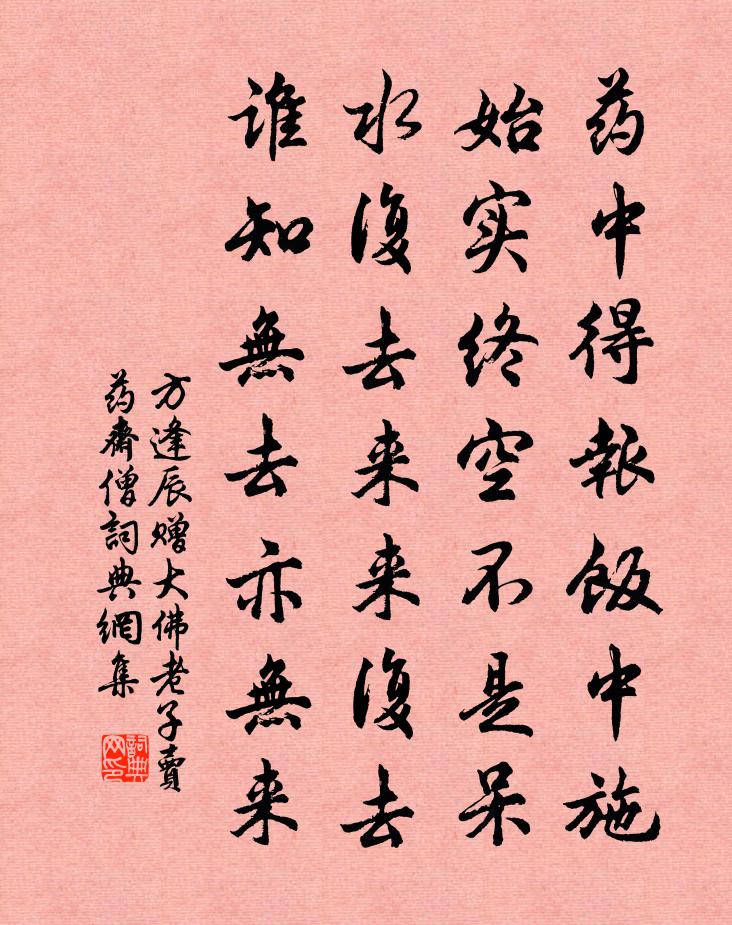 药中得報飯中施
始实终空不是呆
水復去来来復去
谁知無去亦無来
方逢辰赠大佛老子賣
药齋僧詞典網集
詞典
网印